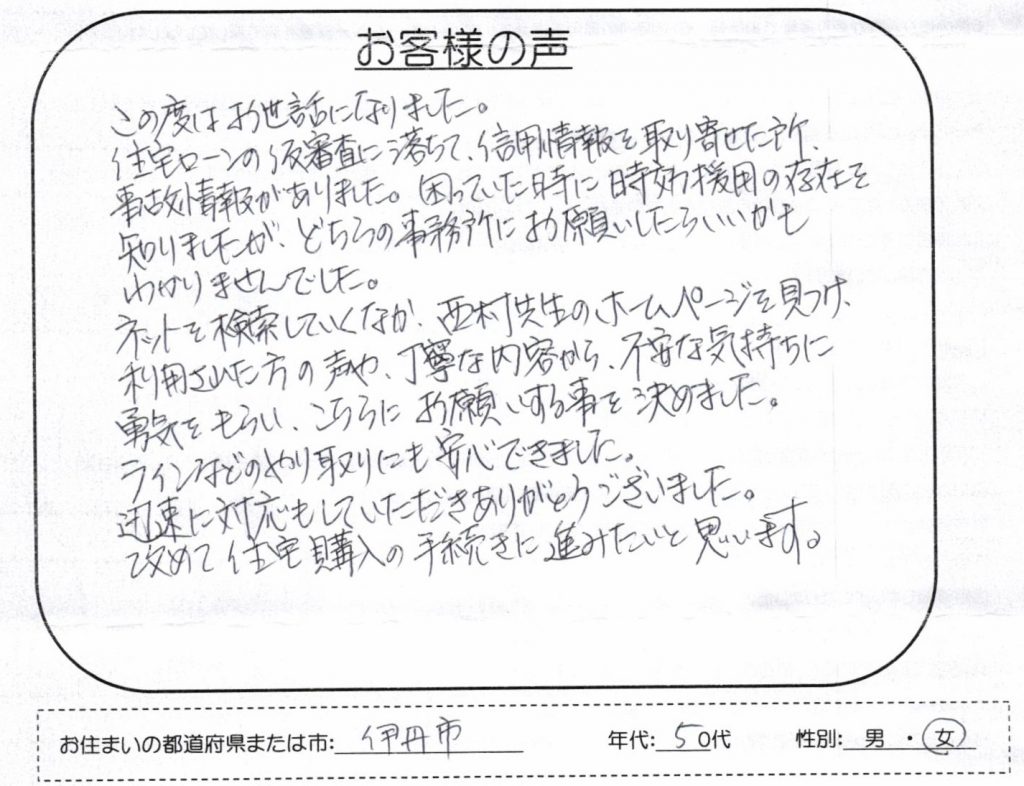 お客様の声
この度はお世話になりました。
住宅ローンの仮審査に落ちて、信用情報を取り寄せた所、
事故情報がありました。困っていた時に時効援用の存在を
知りましたが、どちらの事務所にお願いしたらいいかも
わかりませんでした。
ネットを検索していくなか、西村共生のホームページを見つけ、
利用された方の声や、丁寧な内容から、不安な気持ちに
勇気をもらい、こちらにお願いする事を決めました。
ラインなどのやり取りにも安心できました。
迅速に対応もしていただきありがとうございました。
改めて住宅購入の手続きに進みたいと思います。
お住まいの都道府県または市: 伊丹市 年代: 50代 性別: 男 ・ 女